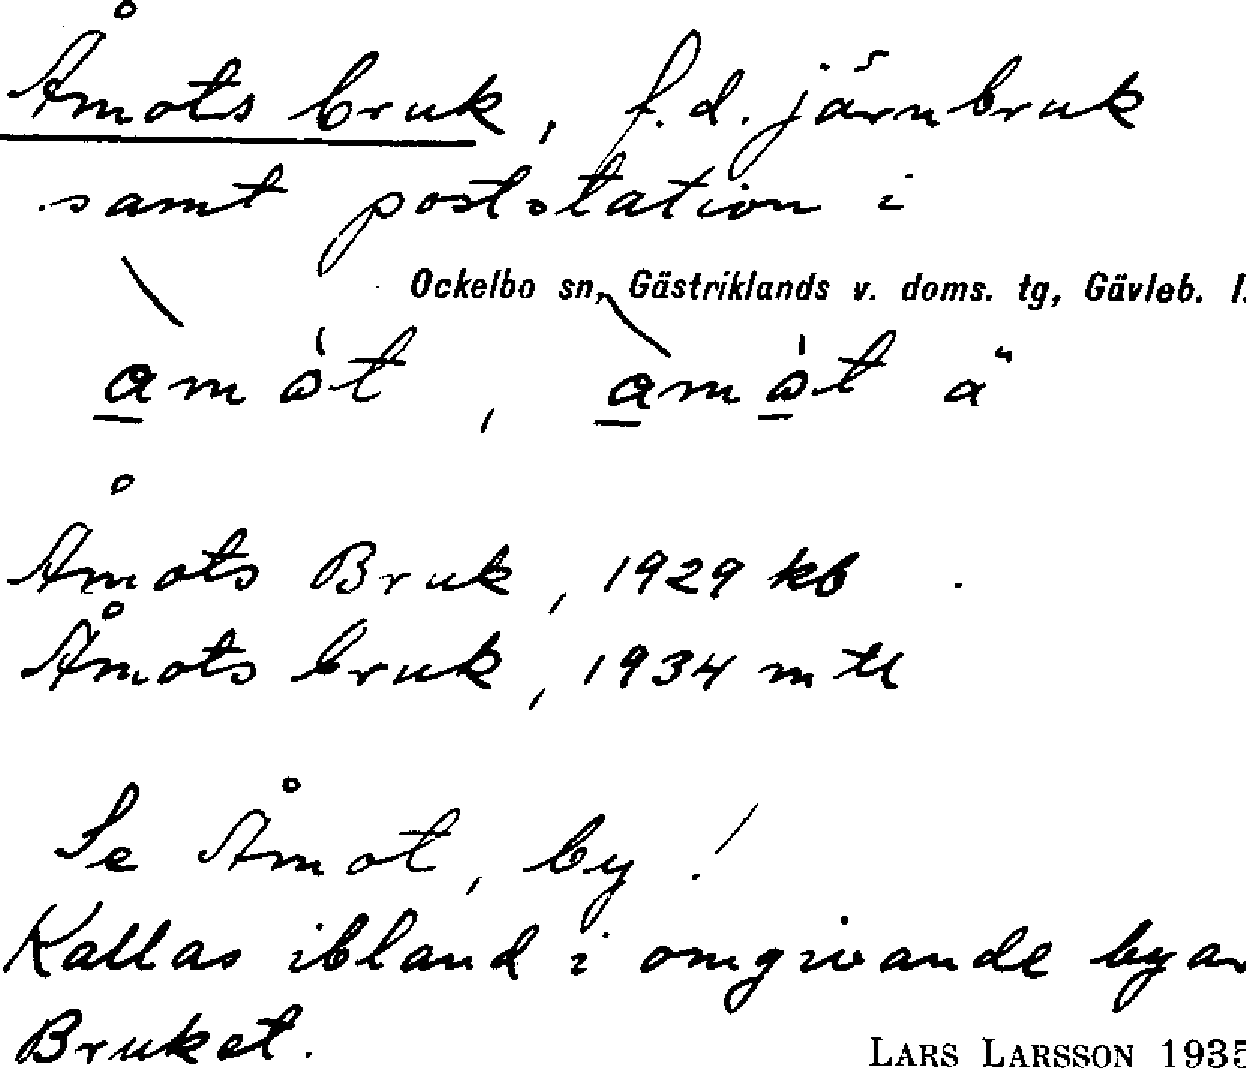 Åmots bruk, f.d. järnbruk
samt poststation i
Ockelbo sn, Gästriklands v. doms. tg, Gävleb. l.
amót, amót ä
Åmots Bruk, 1929 kb.
Åmots bruk, 1934 mtl
Se Åmot, by!
Kallas ibland i omgivande byar
Bruket.
LARS LARSSON 1935